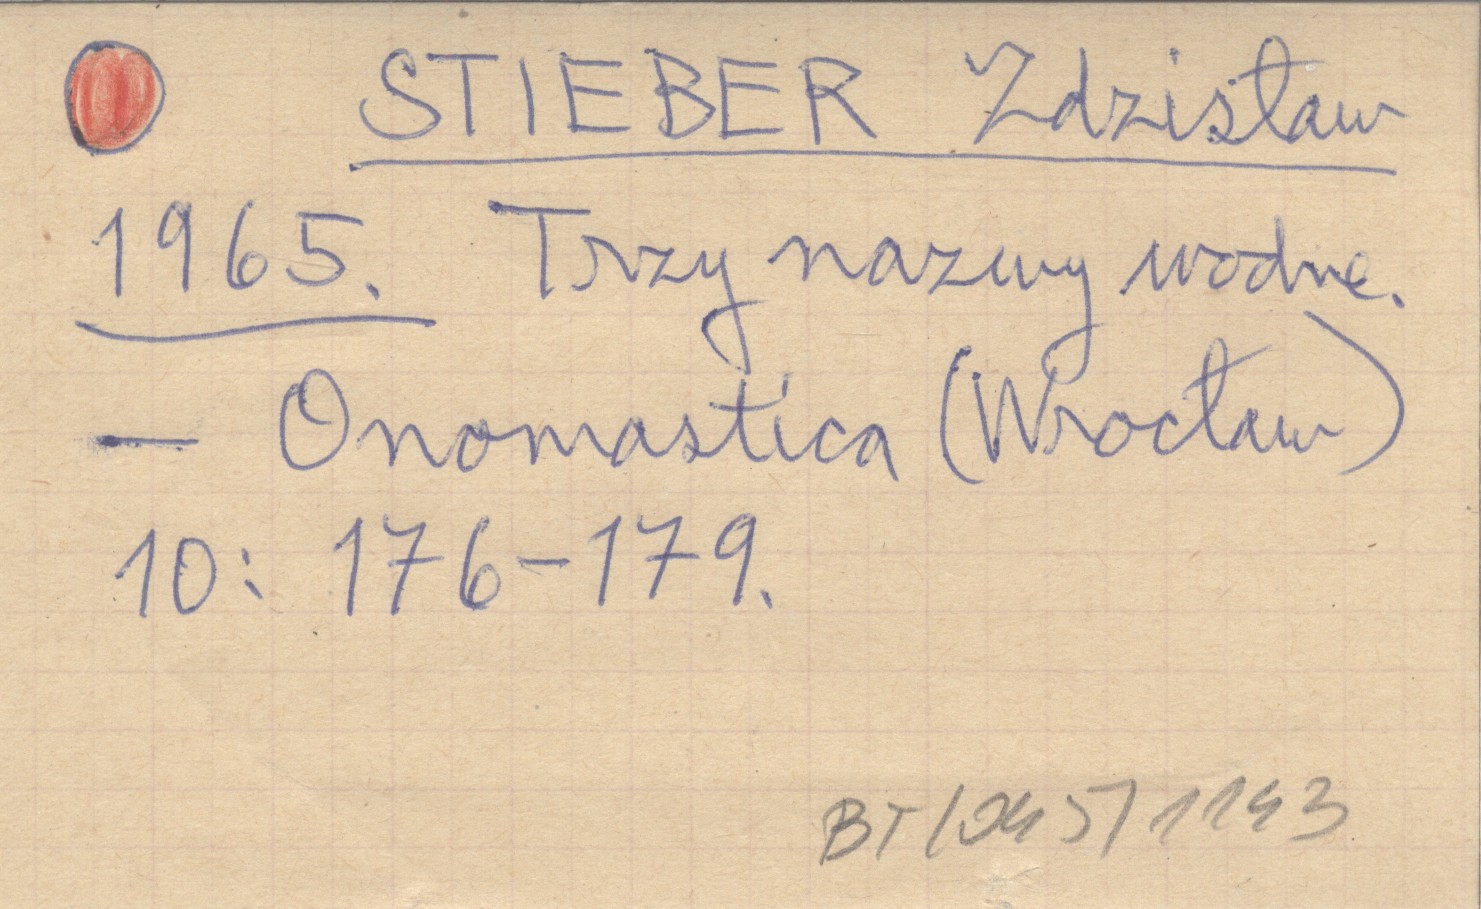 STIEBER Zdzisław
1965. Trzy nazwy wodne.
— Onomastica (Wrocław)
10: 176-179.